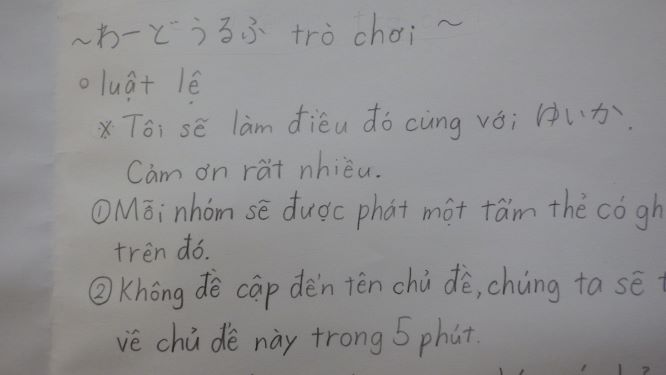 ～わーどうるふ trò chơi ～
○ luật lệ
※ Tôi sẽ làm điều đó cùng với ゆいか.
Cảm ơn rất nhiều.
① Mỗi nhóm sẽ được phát một tấm thẻ có
trên đó.
② Không đề cập đến tên chủ đề, chúng ta sẽ
về chủ đề này trong 5 phút.